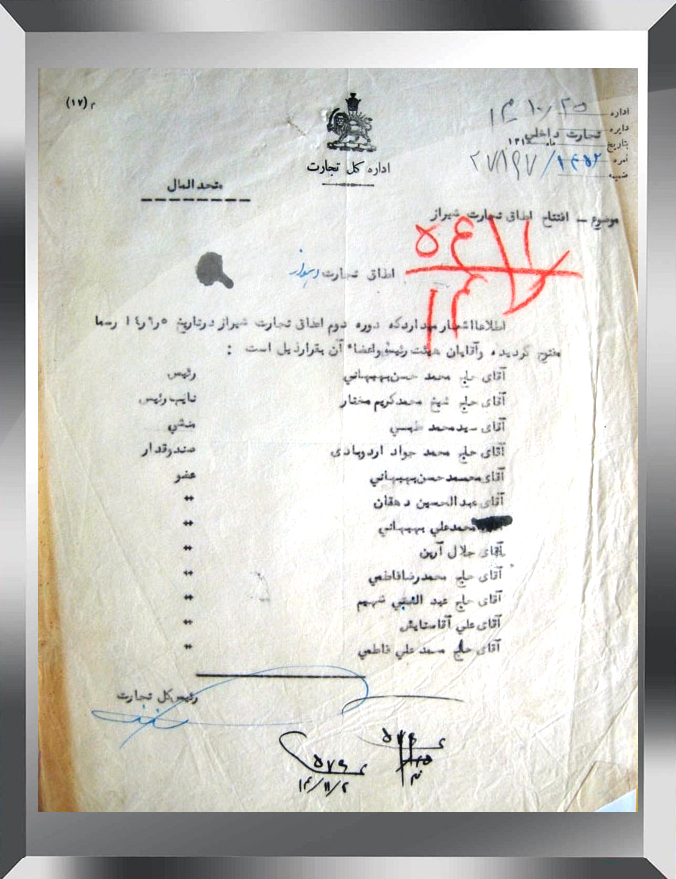 م (۱۷)
اداره
دایره تجارت داخلی
تاریخ
نمره ۲۷۸۹۷/۱۴۵۲
ضمیمه
اداره کل تجارت
متحد المال
موضوع – افتتاح اطاق تجارت شیراز
اطاق تجارت
اطلاعا اشعار میدارد که دوره دوم اطاق تجارت شیراز در تاریخ رسما
مفتوح گردیده و آقایان هیئت رئیسه و اعضاء آن بقرار ذیل است :
آقای حاج محمد حسن بهبهانی رئیس
آقای حاج شیخ محمد کریم مختار نایب رئیس
آقای سید محمد منشی
آقای حاج محمد جواد اردوبادی صندوقدار
آقای محمد حسن بهبهانی عضو
آقای عبد الحسین دهقان "
محمد علی بهبهانی "
آقای جلال آرین "
آقای حاج محمد رضا فاطمی "
آقای حاج عبد النبی "
آقای علی آقا ستایش "
آقای حاج محمد علی فاطمی "
رئیس کل تجارت
۱۴/۱۱/۲